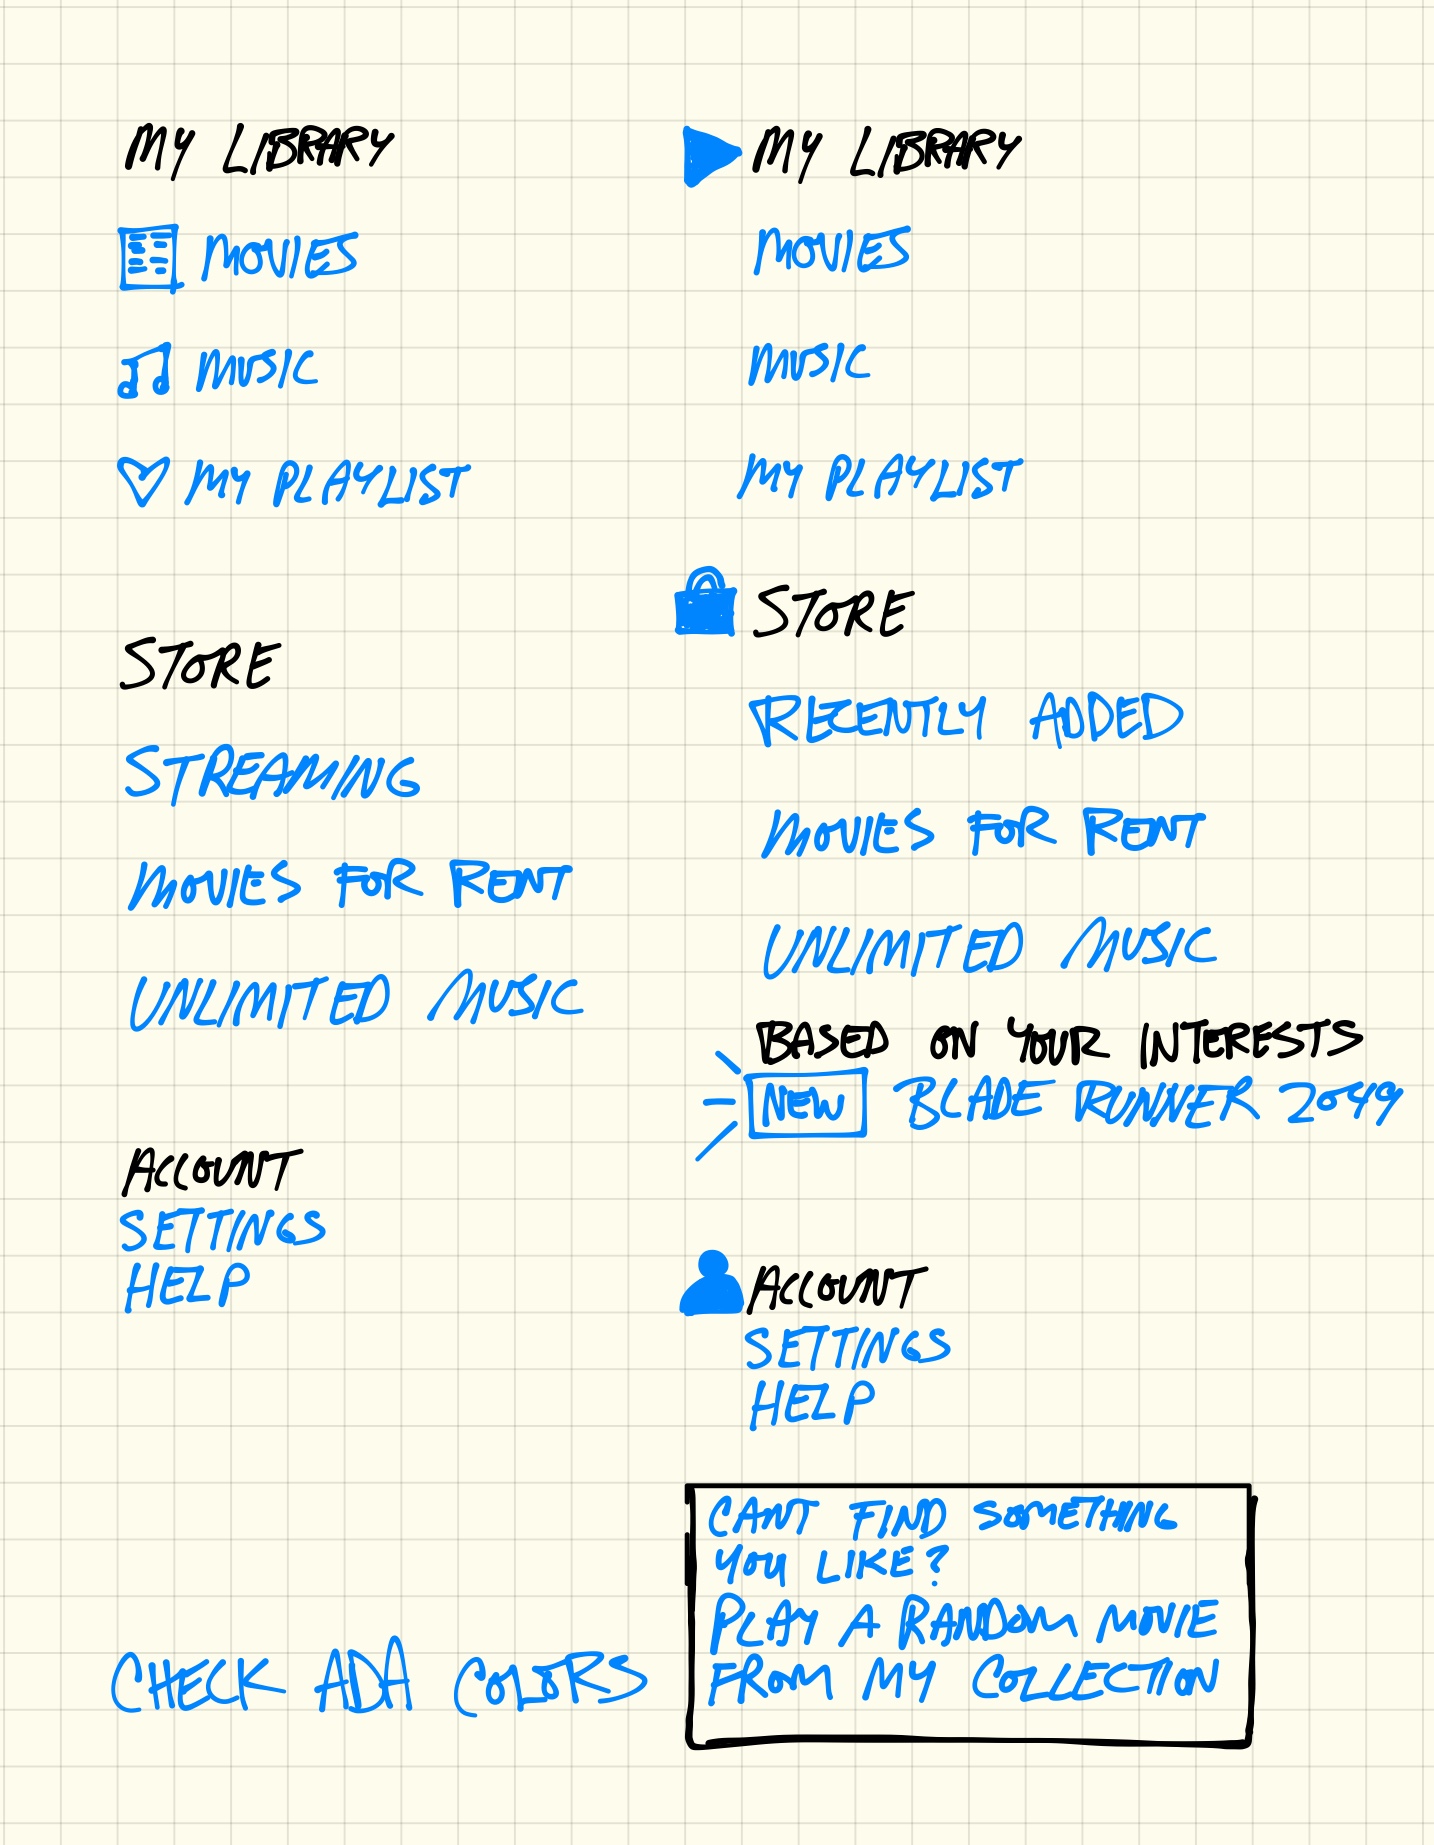 MY LIBRARY
MOVIES
MUSIC
MY PLAYLIST
STORE
STREAMING
MOVIES FOR RENT
UNLIMITED MUSIC
ACCOUNT
SETTINGS
HELP
CHECK ADA COLORS
MY LIBRARY
MOVIES
MUSIC
MY PLAYLIST
STORE
RECENTLY ADDED
MOVIES FOR RENT
UNLIMITED MUSIC
BASED ON YOUR INTERESTS
NEW BLADE RUNNER 2049
ACCOUNT
SETTINGS
HELP
CANT FIND SOMETHING
YOU LIKE?
PLAY A RANDOM MOVIE
FROM MY COLLECTION